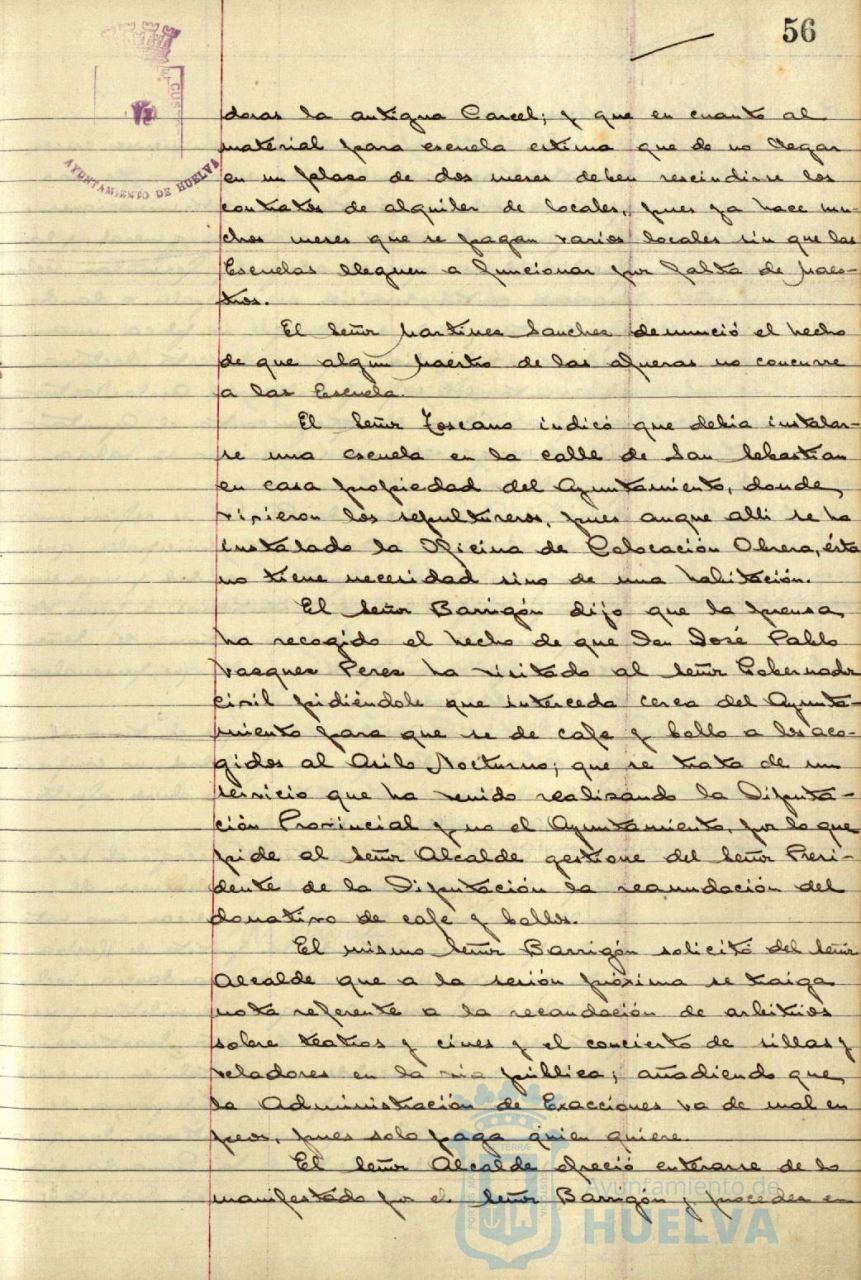 56
AYUNTAMIENTO DE HUELVA
doras la antigua Carcel; y que en cuanto al
material para escuela estima que de no llegar
en un plazo de dos meses deben rescindirse los
contratos de alquiler de locales, pues ya hace mu-
chos meses que se pagan varios locales sin que las
Escuelas lleguen a funcionar por falta de maes-
tros.
El Señor Martinez Sanchez denunció el hecho
de que algún maestro de las afueras no concurre
a las Escuela.
El Señor Toscano indicó que debia instalar-
se una escuela en la calle de San Sebastian
en casa propiedad del Ayuntamiento, donde
vivieron los sepultureros, pues aunque alli se ha
instalado la Oficina de Colocación Obrera, ésta
no tiene necesidad sino de una habitación.
El Señor Barrigón dijo que la prensa
ha recogido el hecho de que Don José Pablo
Vazquez Perez ha visitado al Señor Gobernador
civil pidiéndole que interceda cerca del Ayunta-
miento para que se de cafe y bollo a los aco-
gidos al Asilo Nocturno; que se trata de un
servicio que ha venido realizando la Diputa-
ción Provincial y no el Ayuntamiento, por lo que
pide al Señor Alcalde gestione del Señor Presi-
dente de la Diputación la reanudación del
donativo de cafe y bollos.
El mismo Señor Barrigón solicitó del Señor
Alcalde que a la sesión próxima se traiga
nota referente a la recaudación de arbitrios
sobre teatros y cines y el concierto de sillas y
veladores en la via pública; añadiendo que
la Administración de Exacciones va de mal en
peor, pues solo paga quien quiere.
El Señor Alcalde ofreció enterarse de lo
manifestado por el Señor Barrigón y proceder en
Ayuntamiento de
HUELVA